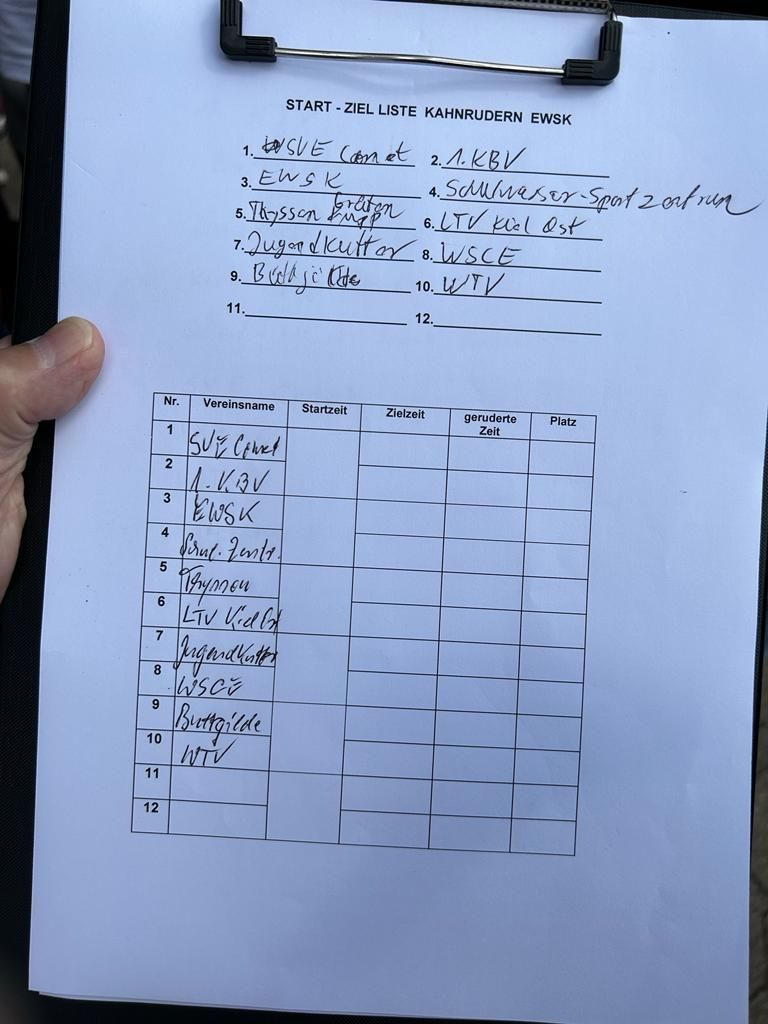 START - ZIEL LISTE KAHNRUDERN EWSK
1. SVE Comet 2. 1. KBV
3. EWSK 4. Schulwasser-Sportzentrum
5. Thyssen Krupp 6. LTV Kiel Ost
7. Jugendkutter 8. WSCE
9. 10. WTV
11. 12.
Nr. Vereinsname Startzeit Zielzeit geruderte Zeit Platz
1 SVE Comet
2 1. KBV
3 EWSK
4 Schul. Zentr.
5 Thyssen
6 LTV Kiel Ost
7 Jugendkutter
8 WSCE
9 Buttgilde
10 WTV
11
12